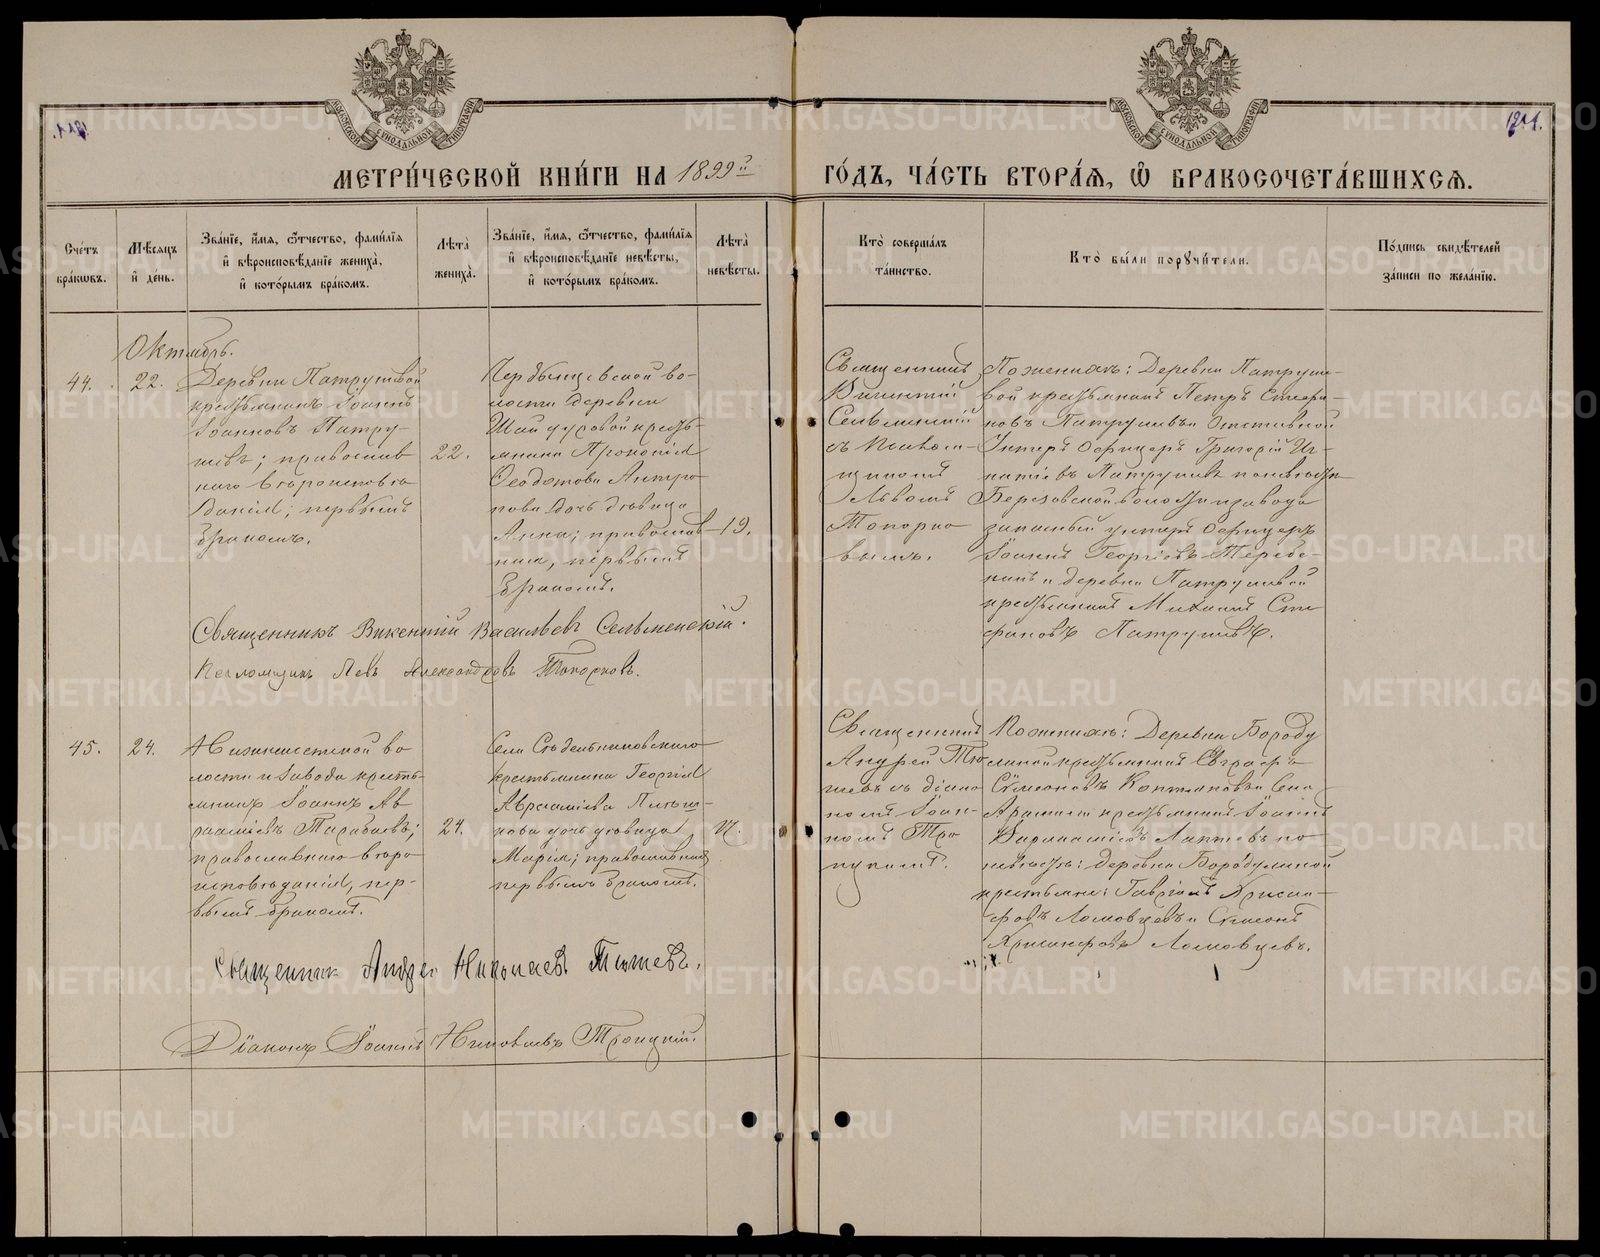 МЕТРИ́ЧЕСКОЙ КНИ́ГИ НА 1899й ГО́ДЪ, ЧА́СТЬ ВТОРА́Я, Ѡ БРАКОСОЧЕТА́ВШИХСЯ.
Сче́тъ бра́кѡвъ.
Мѣ́сяцъ и҆ день.
Зва́нїе, и҆́мя, ѻ҆́тчество, фами́лїя и҆ вѣроисповѣ́данїе жениха̀, и҆ кото́рымъ бра́комъ.
Лѣ́та жениха̀.
Зва́нїе, и҆́мя, ѻ҆́тчество, фами́лїя и҆ вѣроисповѣ́данїе невѣ́сты, и҆ кото́рымъ бра́комъ.
Лѣ́та невѣ́сты.
Кто̀ соверша́лъ та́инство.
Кто̀ бы́ли порꙋчи́тели.
По́дпись свидѣ́телей за́писи по жела́нїю.
Октябрь.
44.
22.
Деревни Патрушевой
крестьянинъ Іоаннъ
Іоанновъ Патру-
шевъ; православ
наго вѣроисповѣ
данія; первымъ
бракомъ.
22.
волости деревни
крестьянина Прокопія
Ѳеодотова Антро
пова дочь дѣвица
Анна; православ
ная, первымъ
бракомъ.
19.
Священникъ
Викентій
Сельменскій
съ Псалом-
щикомъ
Львомъ
Топорко
вымъ.
По женихѣ: Деревни Патруше-
вой крестьянинъ Петръ Стефа-
новъ Патрушевъ и Отставной
Унтеръ Офицеръ Григорій Иг-
натіевъ Патрушевъ по невѣстѣ
Березовской волости и завода
запасный унтеръ офицеръ
Іоаннъ Георгіевъ Теребе-
нинъ и деревни Патрушевой
крестьянинъ Михаилъ Сте
фановъ Патрушевъ.
Священникъ Викентій Васильевъ Сельменскій.
Псаломщикъ Левъ Александровъ Топорковъ.
45.
24.
Нижнеисетской во
лости и завода кресть-
янинъ Іоаннъ Ав
раамієвъ Тарабаевъ;
православнаго вѣро
исповѣданія, пер-
вымъ бракомъ.
24.
крестьянина Георгія
Авраамієва
дочь дѣвица
Марія; православная
первымъ бракомъ.
Священникъ
Андрей Тю
шевъ съ діако
номъ Іоан-
номъ Тро
ицкимъ.
По женихѣ: Деревни Бороду
линой крестьянинъ Евграфъ
Сѵмеоновъ Коптяковъ и Села
Арамили крестьянинъ Іоаннъ
Лаптевъ по
невѣстѣ: Деревни Бородулиной
крестьяне: Гавріилъ Хрисан-
фовъ Ломовцевъ и Сѵмеонъ
Хрисанфовъ Ломовцевъ.
Священник Андрей Николаевъ Тюшевъ.
Діаконъ Іоаннъ Троицкій.
METRIKI.GASO-URAL.RU